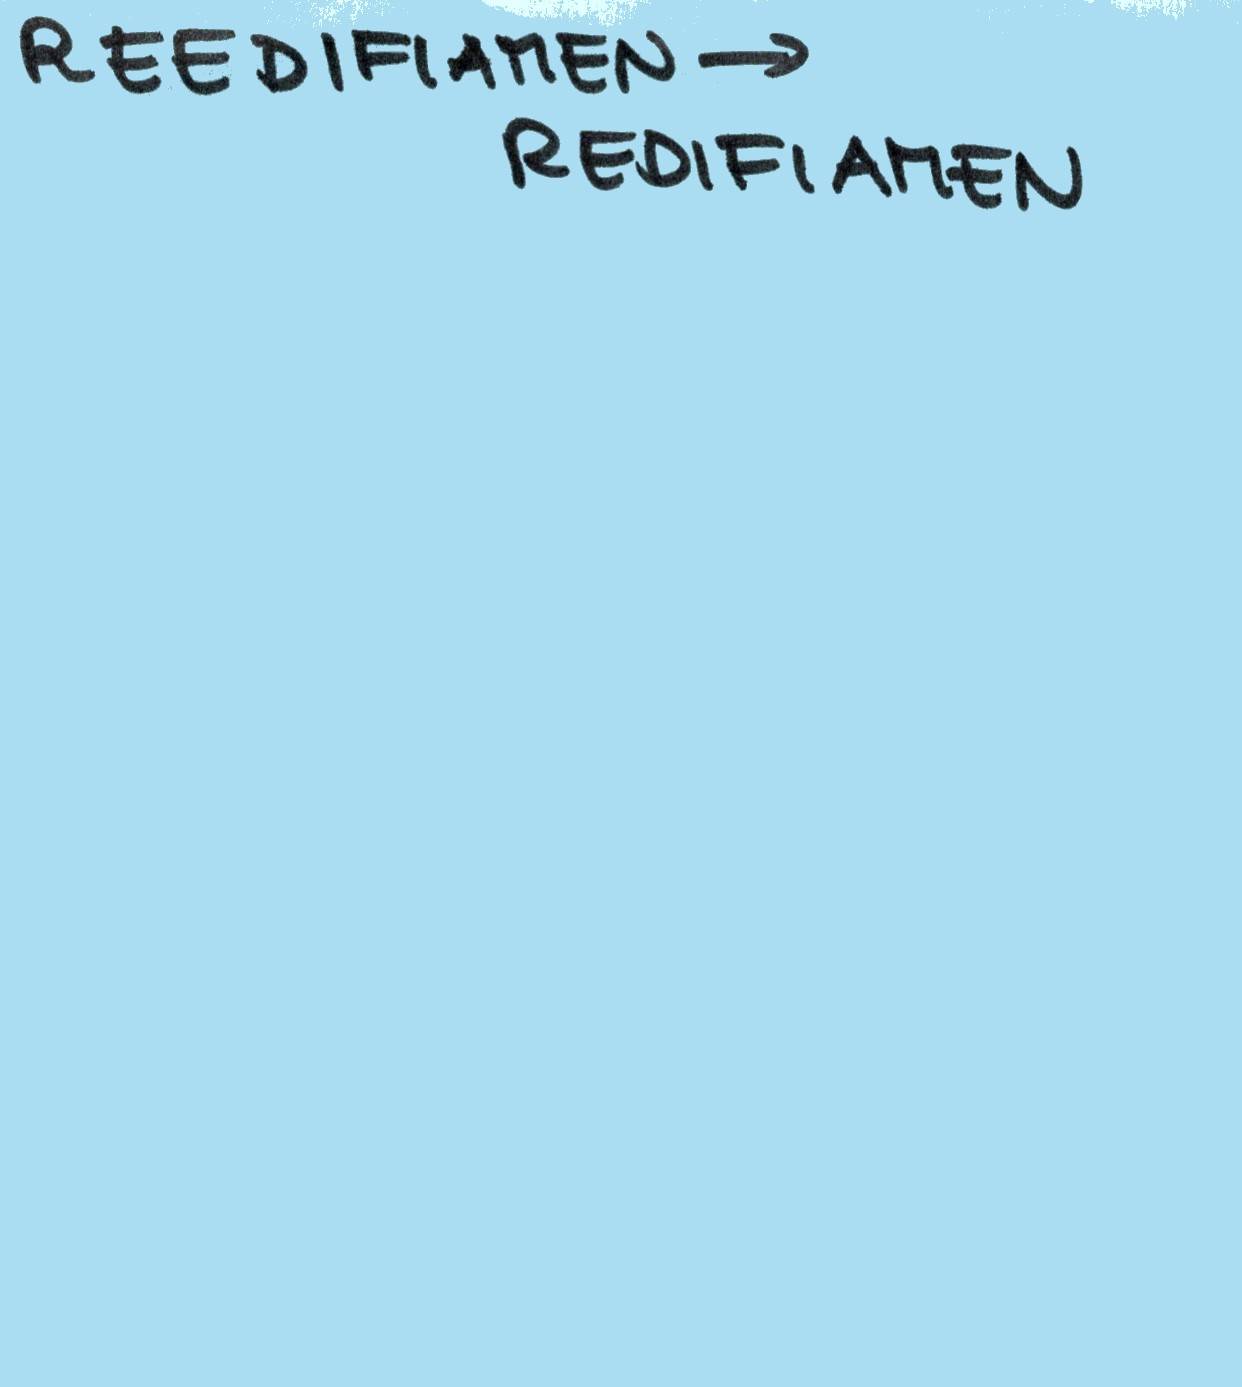 REEDIFIAMEN →
REDIFIAMEN